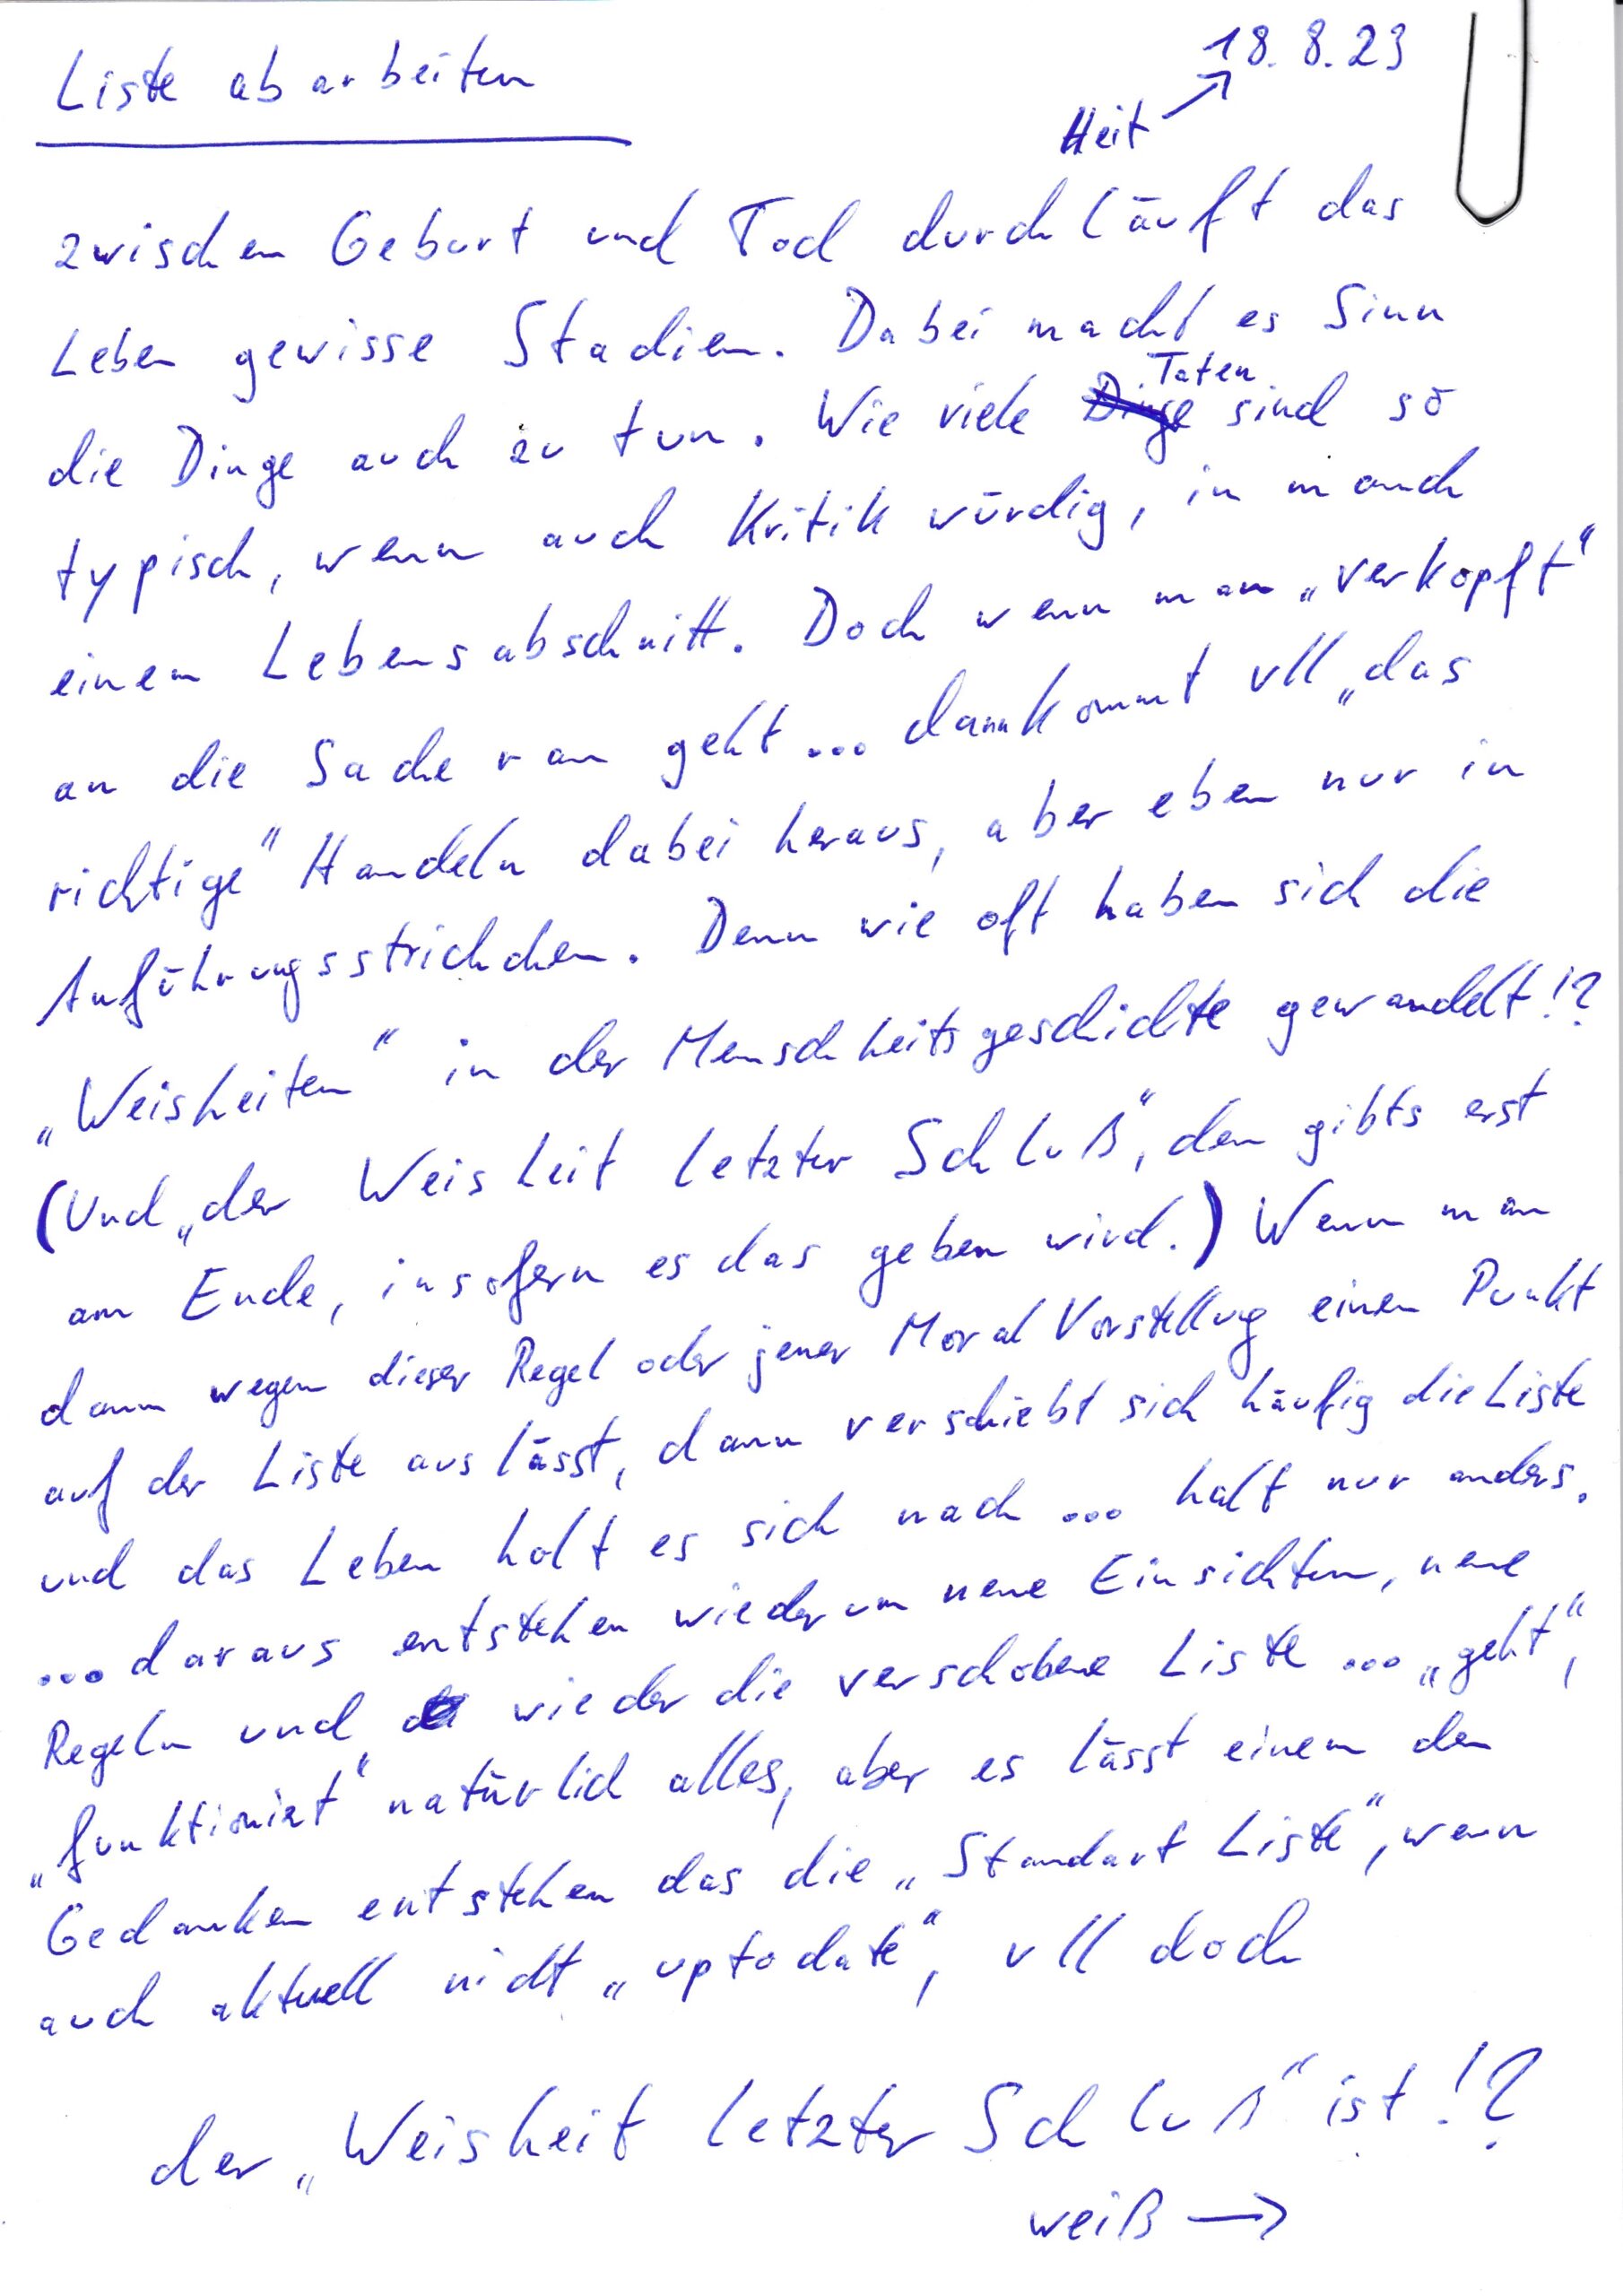 Liste abarbeiten
18. 8. 23
Heit
zwischen Geburt und Tod durchläuft das
Leben gewisse Stadien. Dabei macht es Sinn
die Dinge auch zu tun. Wie viele Dinge Taten sind so
typisch, wenn auch Kritik würdig, in manch
einem Lebensabschnitt. Doch wenn man „verkopft"
an die Sache ran geht ... dann kommt vll „das
richtige" Handeln dabei heraus, aber eben nur in
Anführungsstrichchen. Denn wie oft haben sich die
„Weisheiten" in der Menschheitsgeschichte gewandelt!?
(Und „der Weisheit letzter Schluß", den gibts erst
am Ende, insofern es das geben wird.) Wenn man
dann wegen dieser Regel oder jener Moral Vorstellung einen Punkt
auf der Liste aus lässt, dann verschiebt sich häufig die Liste
und das Leben holt es sich nach ... halt nur anders.
... daraus entstehen wiederum neue Einsichten, neue
Regeln und wieder die verschobene Liste ... „geht",
„funktioniert" natürlich alles, aber es lässt einem den
Gedanken entstehen das die „Standart Liste", wenn
auch aktuell nicht „up to date", vll doch
der „Weisheit letzter Schluß" ist!?
weiß →